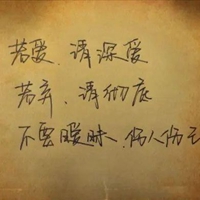 若爱，请深爱
若弃，请彻底
不要暧昧、伤人伤己